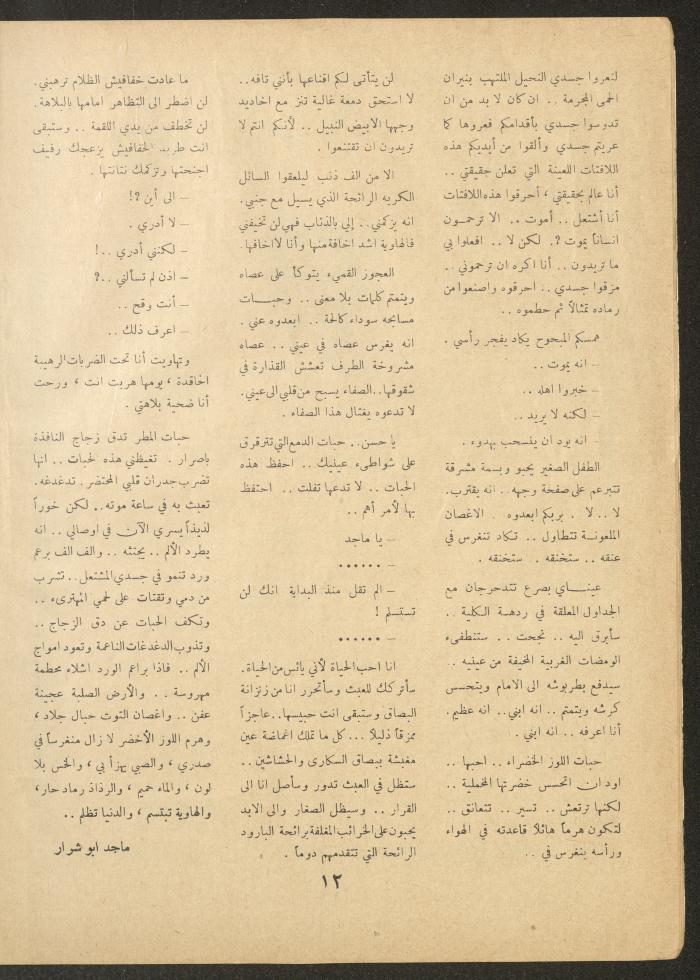 لنعروا جسدي النحيل الملتهب بنيران
الحمى المجرمة .. ان كان لا بد من ان
تدوسوا جسدي بأقدامكم فعروها كما
عريتم جسدي وألقوا من أيديكم هذه
اللافتات اللعينة التي تعلن حقيقتي ..
أنا عالم بحقيقتي ، أحرقوا هذه اللافتات
أنا أشتعل .. أموت .. الا ترحمون
انساناً يموت ?. لكن لا .. افعلوا بي
ما تريدون .. أنا اكره ان ترحموني ..
مزقوا جسدي .. احرقوه واصنعوا من
رماده تمثالاً ثم حطموه ..
همسكم المبحوح يكاد يفجر رأسي .
ــ انه يموت ..
ــ خبروا اهله ..
ــ لكنه لا يريد ..
ــ انه يود ان ينسحب بهدوء .
الطفل الصغير يحبو وبسمة مشرقة
تتبرعم على صفحة وجهه .. انه يقترب.
لا .. لا . بربكم ابعدوه . الاغصان
الملعونة تتطاول .. تكاد تنغرس في
عنقه .. ستخنقه .. ستخنقه .
عيناي بصرع تتدحرجان مع
الجداول المعلقة في ردهة الكلية ..
سأبرق اليه .. نجحت .. ستنطفىء
الومضات الغريبة المخيفة من عينيه ..
سيدفع بطربوشه الى الامام ويتحسس
كرشه ويتمتم .. انه ابني.. انه عظيم.
أنا اعرفه .. انه ابني .
حبات اللوز الخضراء .. احبها ..
اود ان اتحسس خضرتها المخملية ..
لكنها ترتعش .. تسير .. تتعانق ..
لتكون هرماً هائلاً قاعدته في الهواء
ورأسه ينغرس في ..
لن يتأتى لكم اقناعها بأنني تافه..
لا استحق دمعة غالية تنز مع اخاديد
وجهها الابيض النبيل .. لأنكم انتم لا
تريدون ان تقتنعوا .
الا من الف ذئب ليلعقوا السائل
الكريه الرائحة الذي يسيل مع جنبي.
انه يزكمني.. إلي بالذئاب فهي لن تخيفني
فالهاوية اشد اخافة منها وأنا لا اخافها.
العجوز القميء يتوكأ على عصاه
ويتمتم كلمات بلا معنى .. وحبات
مسابحه سوداء كالحة .. ابعدوه عني .
انه يغرس عصاه في عيني .. عصاه
مشروخة الطرف تعشش القذارة في
شقوقها.. الصفاء يسبح من قلبي الى عيني.
لا تدعوه يغتال هذا الصفاء .
يا حسن.. حبات الدمع التي تترقرق
على شواطىء عينيك .. احفظ هذه
الحبات .. لا تدعها تفلت .. احتفظ
بها لأمر أهم ..
ــ يا ماجد
ــ ......
ــ الم تقل منذ البداية انك لن
تستسلم !
ــ ......
انا احب الحياة لأني يائس من الحياة.
سأتركك للعبث وسأتحرر انا من زنزانة
البصاق وستبقى انت حبيسها.. عاجزاً
ممزقاً ذليلاً ... كل ما تملك اغماضة عين
مغبشة ببصاق السكارى والحشاشين ..
ستظل في العبث تدور وسأصل انا الى
القرار .. وسيظل الصغار والى الابد
يحبون على الخرائب المغلفة برائحة البارود
الرائحة التي تتقدمهم دوماً .
ما عادت خفافيش الظلام ترهبني.
لن اضطر الى التظاهر امامها بالبلاهة.
لن تخطف من يدي اللقمة .. وستبقى
انت طريد الخفافيش يزعجك رفيف
اجنحتها وتزكمك نتانتها .
ــ الى أين ?!
ــ لا أدري .
ــ لكنني أدري ..!
ــ اذن لم تسألني ..?
ــ أنت وقح ..
ــ اعرف ذلك ..
وتهاويت أنا تحت الضربات الرهيبة
الحاقدة ، يومها هربت انت ، ورحت
أنا ضحية بلاهتي .
حبات المطر تدق زجاج النافذة
باصرار . تغيظني هذه الحبات .. انها
تضرب جدران قلبي المحتضر. تدغدغه.
تعبث به في ساعة موته.. لكن خوراً
لذيذاً يسري الآن في اوصالي .. انه
يطرد الألم .. يجتثه .. والف الف برعم
ورد تنمو في جسدي المشتعل.. تشرب
من دمي وتقتات على لحمي المهترىء ..
وتكف الحبات عن دق الزجاج ..
وتذوب الدغدغات الناعمة وتعود امواج
الألم .. فاذا براعم الورد اشلاء محطمة
مهروسة .. والأرض الصلبة عجينة
عفن .. واغصان التوت حبال جلاد ،
وهرم اللوز الأخضر لا زال منغرساً في
صدري ، والصبي يهزأ بي ، والخس بلا
لون ، والماء حميم ، والرذاذ رماد حار،
والهاوية تبتسم ، والدنيا تظلم ..
ماجد ابو شرار
١٢